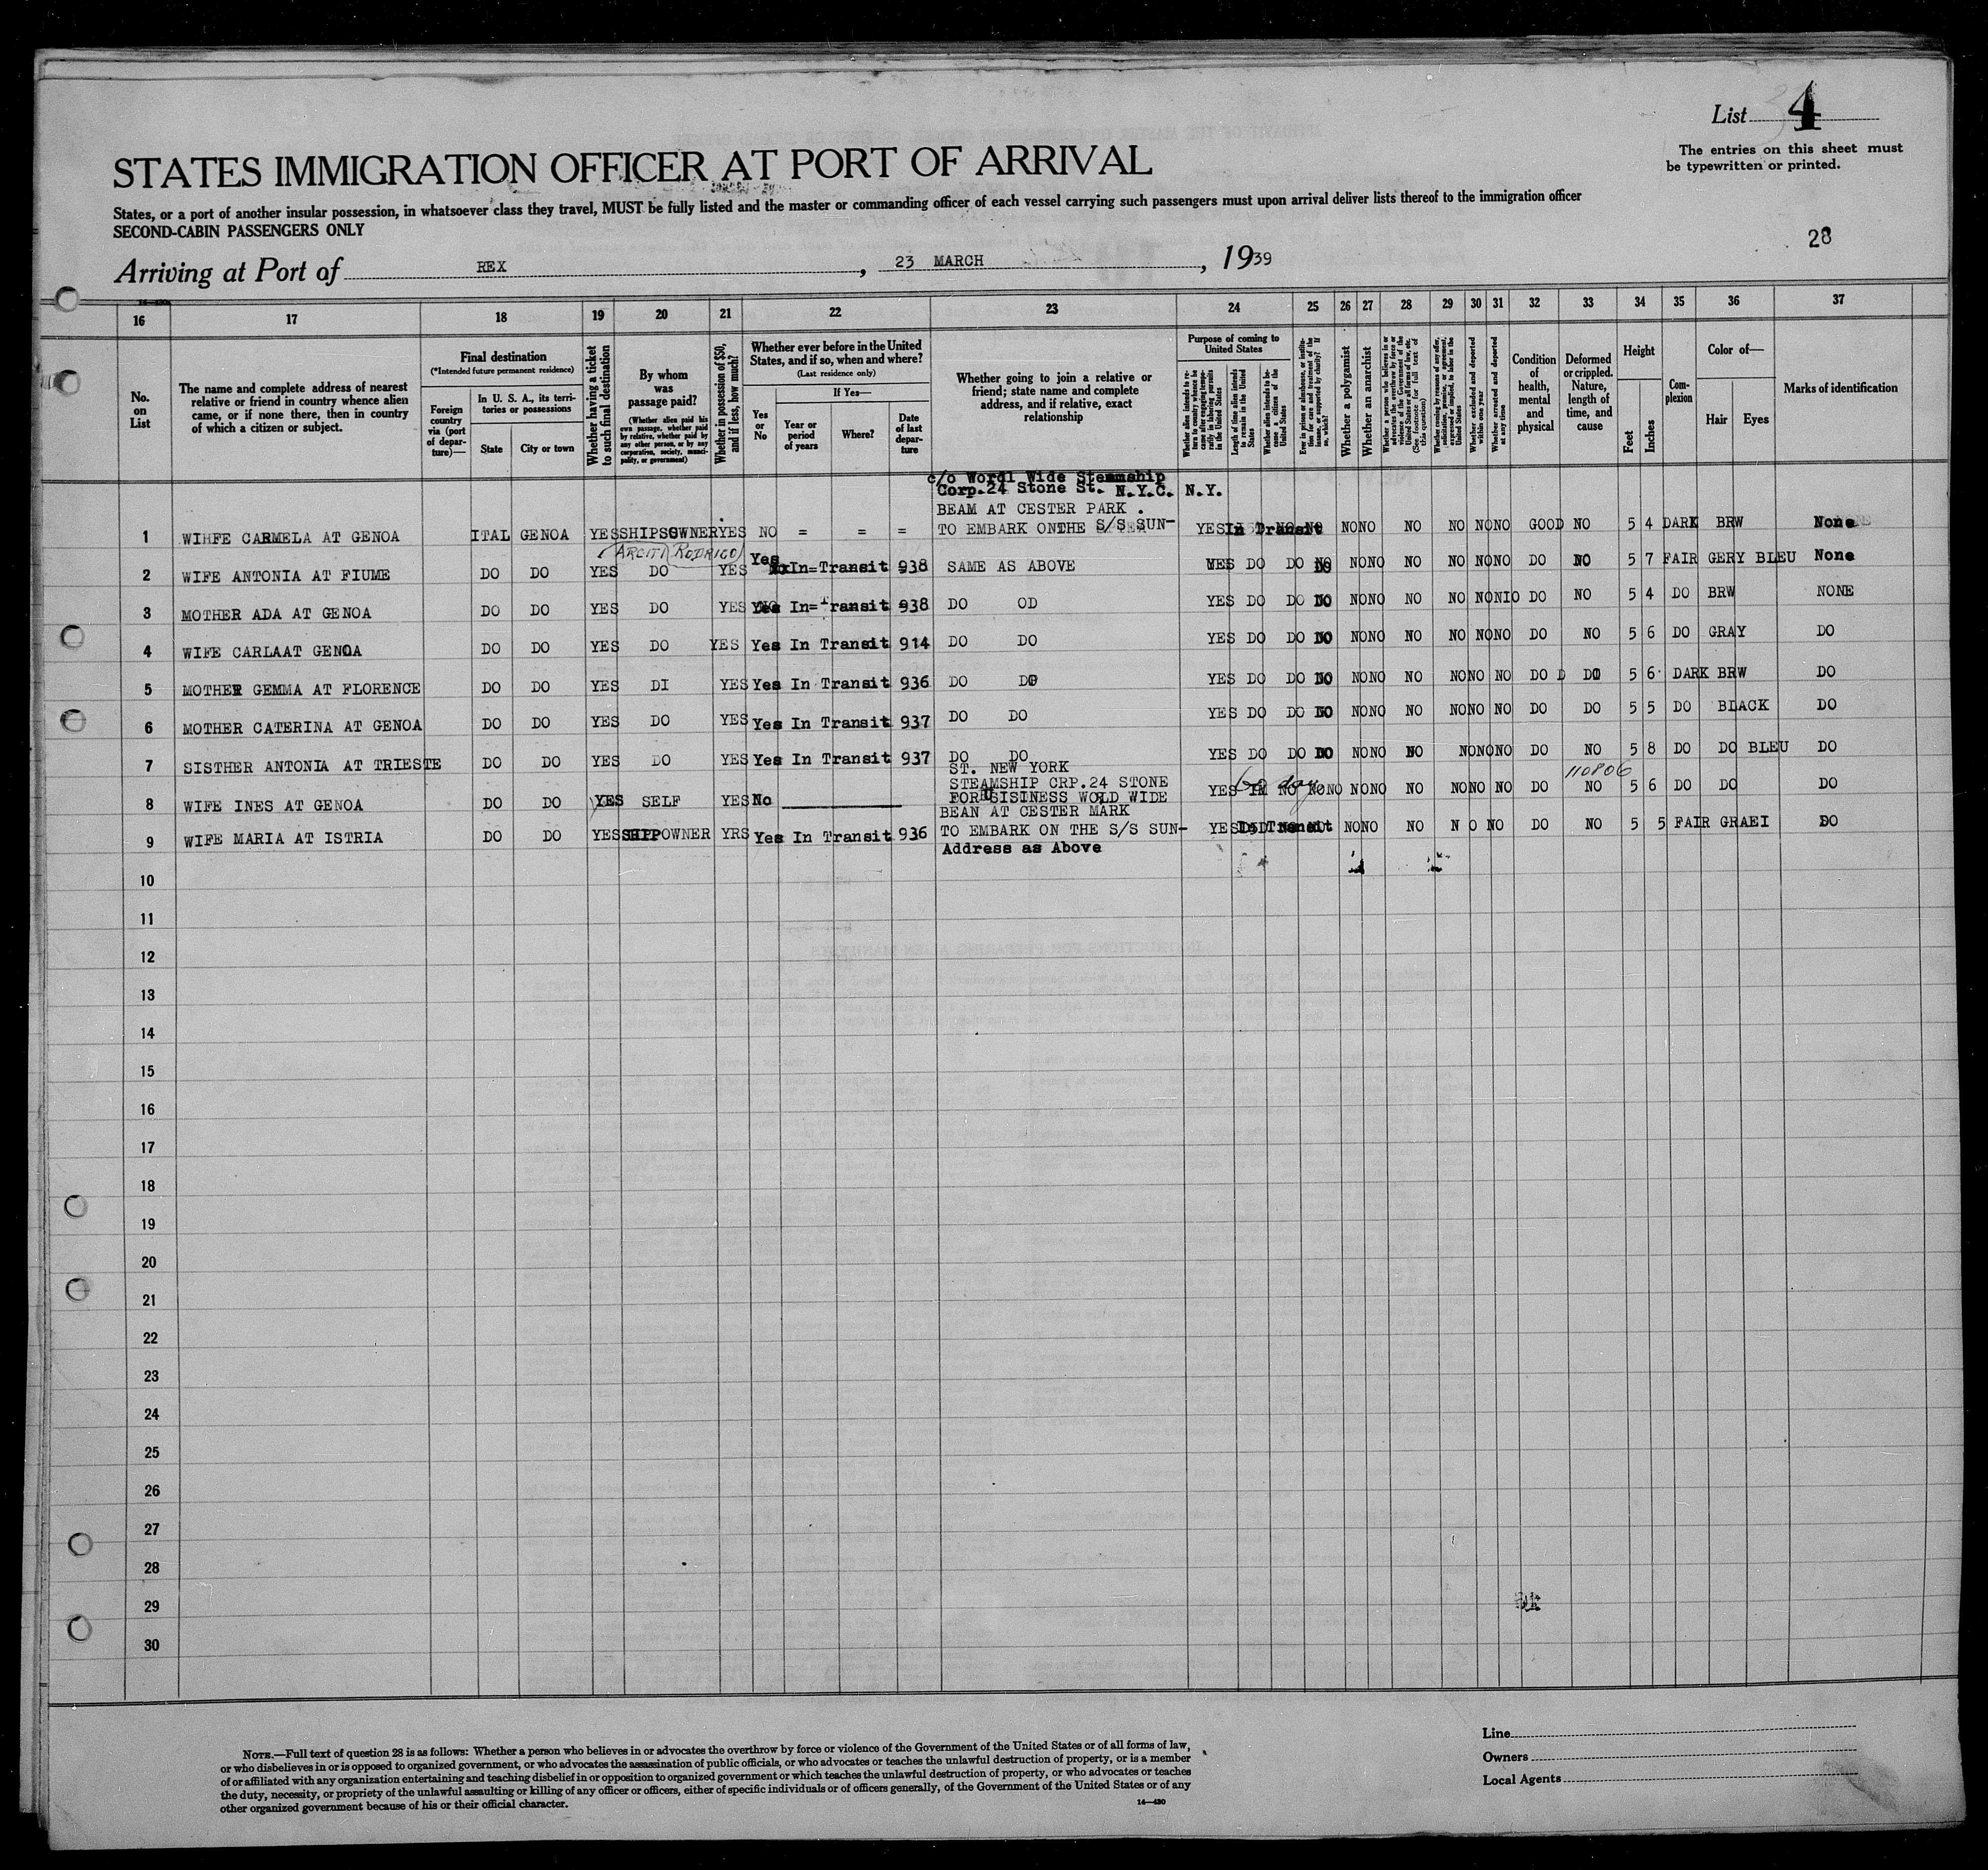 List 4
The entries on this sheet must
be typewritten or printed.
STATES IMMIGRATION OFFICER AT PORT OF ARRIVAL
States, or a port of another insular possession, in whatsoever class they travel, MUST be fully listed and the master or commanding officer of each vessel carrying such passengers must upon arrival deliver lists thereof to the immigration officer
SECOND-CABIN PASSENGERS ONLY
28
Arriving at Port of REX, 23 MARCH, 1939
16 17 18 19 20 21 22 23 24 25 26 27 28 29 30 31 32 33 34 35 36 37
No. on List
The name and complete address of nearest relative or friend in country whence alien came, or if none there, then in country of which a citizen or subject.
Final destination
(*Intended future permanent residence)
Foreign country via (port of departure)—
In U. S. A., its territories or possessions
State
City or town
Whether having a ticket to such final destination
By whom was passage paid?
(Whether alien paid his own passage, whether paid by relative, whether paid by any other person, or by any corporation, society, municipality, or government)
Whether in possession of $50, and if less, how much?
Whether ever before in the United States, and if so, when and where?
(Last residence only)
Yes or No
If Yes—
Year or period of years
Where?
Date of last departure
Whether going to join a relative or friend; state name and complete address, and if relative, exact relationship
Purpose of coming to United States
Whether alien intends to return to country whence he came after engaging temporarily in laboring pursuits in the United States
Length of time alien intends to remain in the United States
Whether alien intends to become a citizen of the United States
Ever in prison or almshouse, or institution for care and treatment of the insane, or supported by charity? If so, which?
Whether a polygamist
Whether an anarchist
Whether a person who believes in or advocates the overthrow by force or violence of the Government of the United States or all forms of law, etc. (See footnote for full text of this question)
Whether coming by reason of any offer, solicitation, promise, or agreement, expressed or implied, to labor in the United States
Whether excluded and deported within one year
Whether arrested and deported at any time
Condition of health, mental and physical
Deformed or crippled. Nature, length of time, and cause
Height
Feet
Inches
Complexion
Color of—
Hair
Eyes
Marks of identification
c/o Wordl Wide Stemmship
Corp.24 Stone St. N.Y.C. N.Y.
BEAM AT CESTER PARK .
1 WIHFE CARMELA AT GENOA ITAL GENOA YES SHIPSOWNER YES NO = = = TO EMBARK ONTHE S/S SUN- YES In Transit NO NO NO NO NO NO GOOD NO 5 4 DARK BRW None
ARCITI RODRIGO
2 WIFE ANTONIA AT FIUME DO DO YES DO YES Yes In=Transit 938 SAME AS ABOVE YES DO DO NO NO NO NO NO NO NO DO NO 5 7 FAIR GERY BLEU None
3 MOTHER ADA AT GENOA DO DO YES DO YES Yes In=Transit 938 DO OD YES DO DO NO NO NO NO NO NO NIO DO NO 5 4 DO BRW NONE
4 WIFE CARLAAT GENOA DO DO YES DO YES Yes In Transit 914 DO DO YES DO DO NO NO NO NO NO NO NO DO NO 5 6 DO GRAY DO
5 MOTHER GEMMA AT FLORENCE DO DO YES DI YES Yes In Transit 936 DO DO YES DO DO NO NO NO NO NO NO NO DO DO 5 6 DARK BRW DO
6 MOTHER CATERINA AT GENOA DO DO YES DO YES Yes In Transit 937 DO DO YES DO DO NO NO NO NO NO NO NO DO DO 5 5 DO BLACK DO
7 SISTHER ANTONIA AT TRIESTE DO DO YES DO YES Yes In Transit 937 DO DO YES DO DO NO NO NO NO NO NO NO DO NO 5 8 DO DO BLEU DO
ST. NEW YORK
STEAMSHIP CRP.24 STONE
60 days
110806
8 WIFE INES AT GENOA DO DO YES SELF YES No FOR SISINESS WOLD WIDE YES NO NO NO NO NO NO NO NO DO NO 5 6 DO DO DO
BEAN AT CESTER MARK
9 WIFE MARIA AT ISTRIA DO DO YES SHIPPOWNER YRS Yes In Transit 936 TO EMBARK ON THE S/S SUN- YES In Transit NO NO NO N O NO DO NO 5 5 FAIR GRAEI DO
Address as Above
10
11
12
13
14
15
16
17
18
19
20
21
22
23
24
25
26
27
28
29
30
NOTE.—Full text of question 28 is as follows: Whether a person who believes in or advocates the overthrow by force or violence of the Government of the United States or of all forms of law,
or who disbelieves in or is opposed to organized government, or who advocates the assassination of public officials, or who advocates or teaches the unlawful destruction of property, or is a member
of or affiliated with any organization entertaining and teaching disbelief in or opposition to organized government or which teaches the unlawful destruction of property, or who advocates or teaches
the duty, necessity, or propriety of the unlawful assaulting or killing of any officer or officers, either of specific individuals or of officers generally, of the Government of the United States or of any
other organized government because of his or their official character.
14—430
Line
Owners
Local Agents